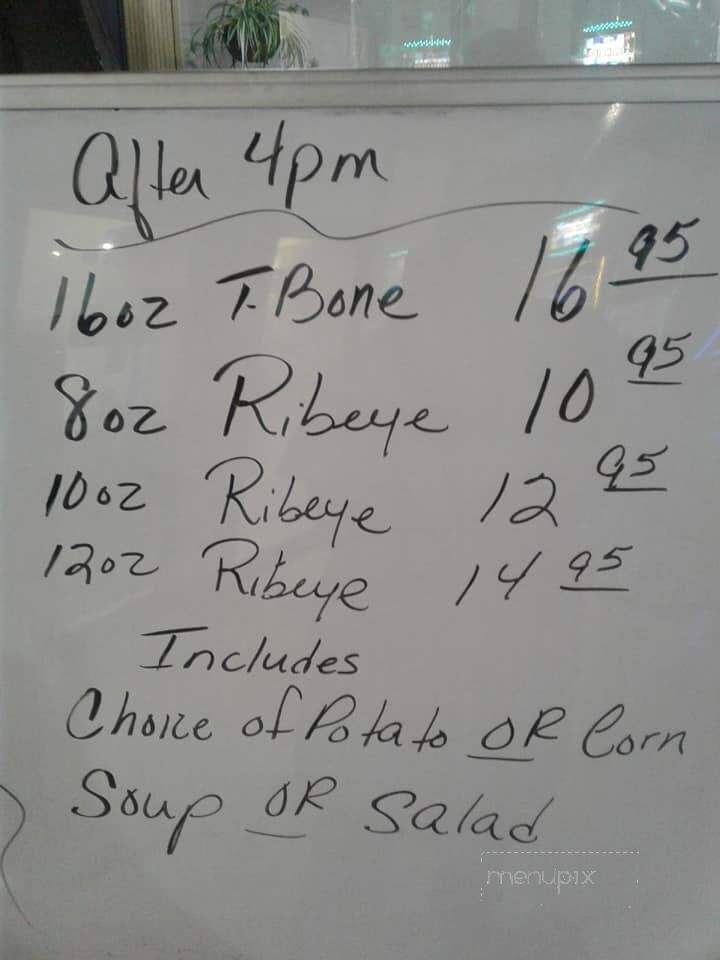 After 4pm
16oz T-Bone 16 95
8oz Ribeye 10 95
10oz Ribeye 12 95
12oz Ribeye 14 95
Includes
Choice of Potato OR Corn
Soup OR Salad
menupix